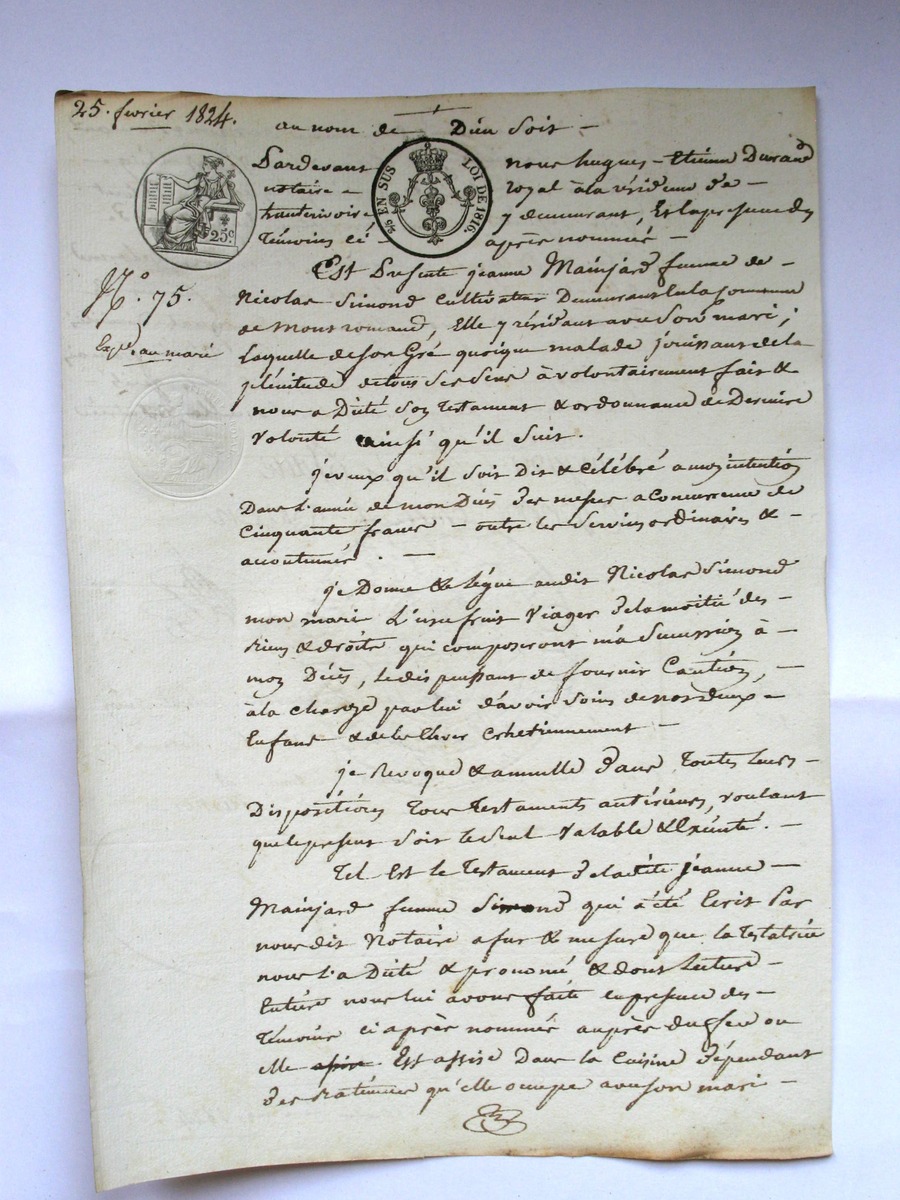 25. fevrier 1824.
au nom de Dieu Soit
Pardevant nous hugues - Etienne Durand
notaire royal à la résidence de
hauterivoire y demeurant, Et la presence des
Témoins ci après nommés
25 c.
¼ EN SUS LOI DE 1816.
N.° 75.
Exp. au mari
Est Presente jeanne Mainjard femme de
Nicolas Simond Cultivateur Demeurant en la Commune
de Montromand, Elle y résidant avec Son mari ;
Laquelle de son Gré quoique malade jouissant de la
plénitude de tous Ses Sens à volontairement fait &
nous a Dicté Son Testament & ordonnance de Derniere
Volonté ainsi qu'il Suit.
je veux qu'il soit Dit & Célébré a mon intention
Dans L'année de mon Décès des messes a Concurrence de
Cinquante francs - outre les Services ordinaires &
accoutumés. -
je Donne & Légue audit Nicolas Simond
mon mari L'usufruit Viager de la moitié des -
Biens & droits qui composeront ma Succession à -
mon Décès, Le dispensant de fournir Caution, -
à la charge par lui d'avoir Soin de nos deux -
Enfans & de les Elever Chrétiennement -
je Revoque & annulle dans Toutes Leurs -
Dispositions Tous Testaments antérieurs, voulant
que le present soit le Seul Valable & Exécuté. -
Tel Est le Testament de ladite jeanne -
Mainjard femme Simond qui à été Ecrit Par
nousdit Notaire a fur & mesure que la Testatrice
nous l'a Dicté & prononcé & dont Lecture -
Entière nous lui avons faite en presence des -
Témoins ci après nommés auprès du feu ou
elle Est assise Dans la Cuisine dépendant
des Batimens qu'elle occupe avec son mari -